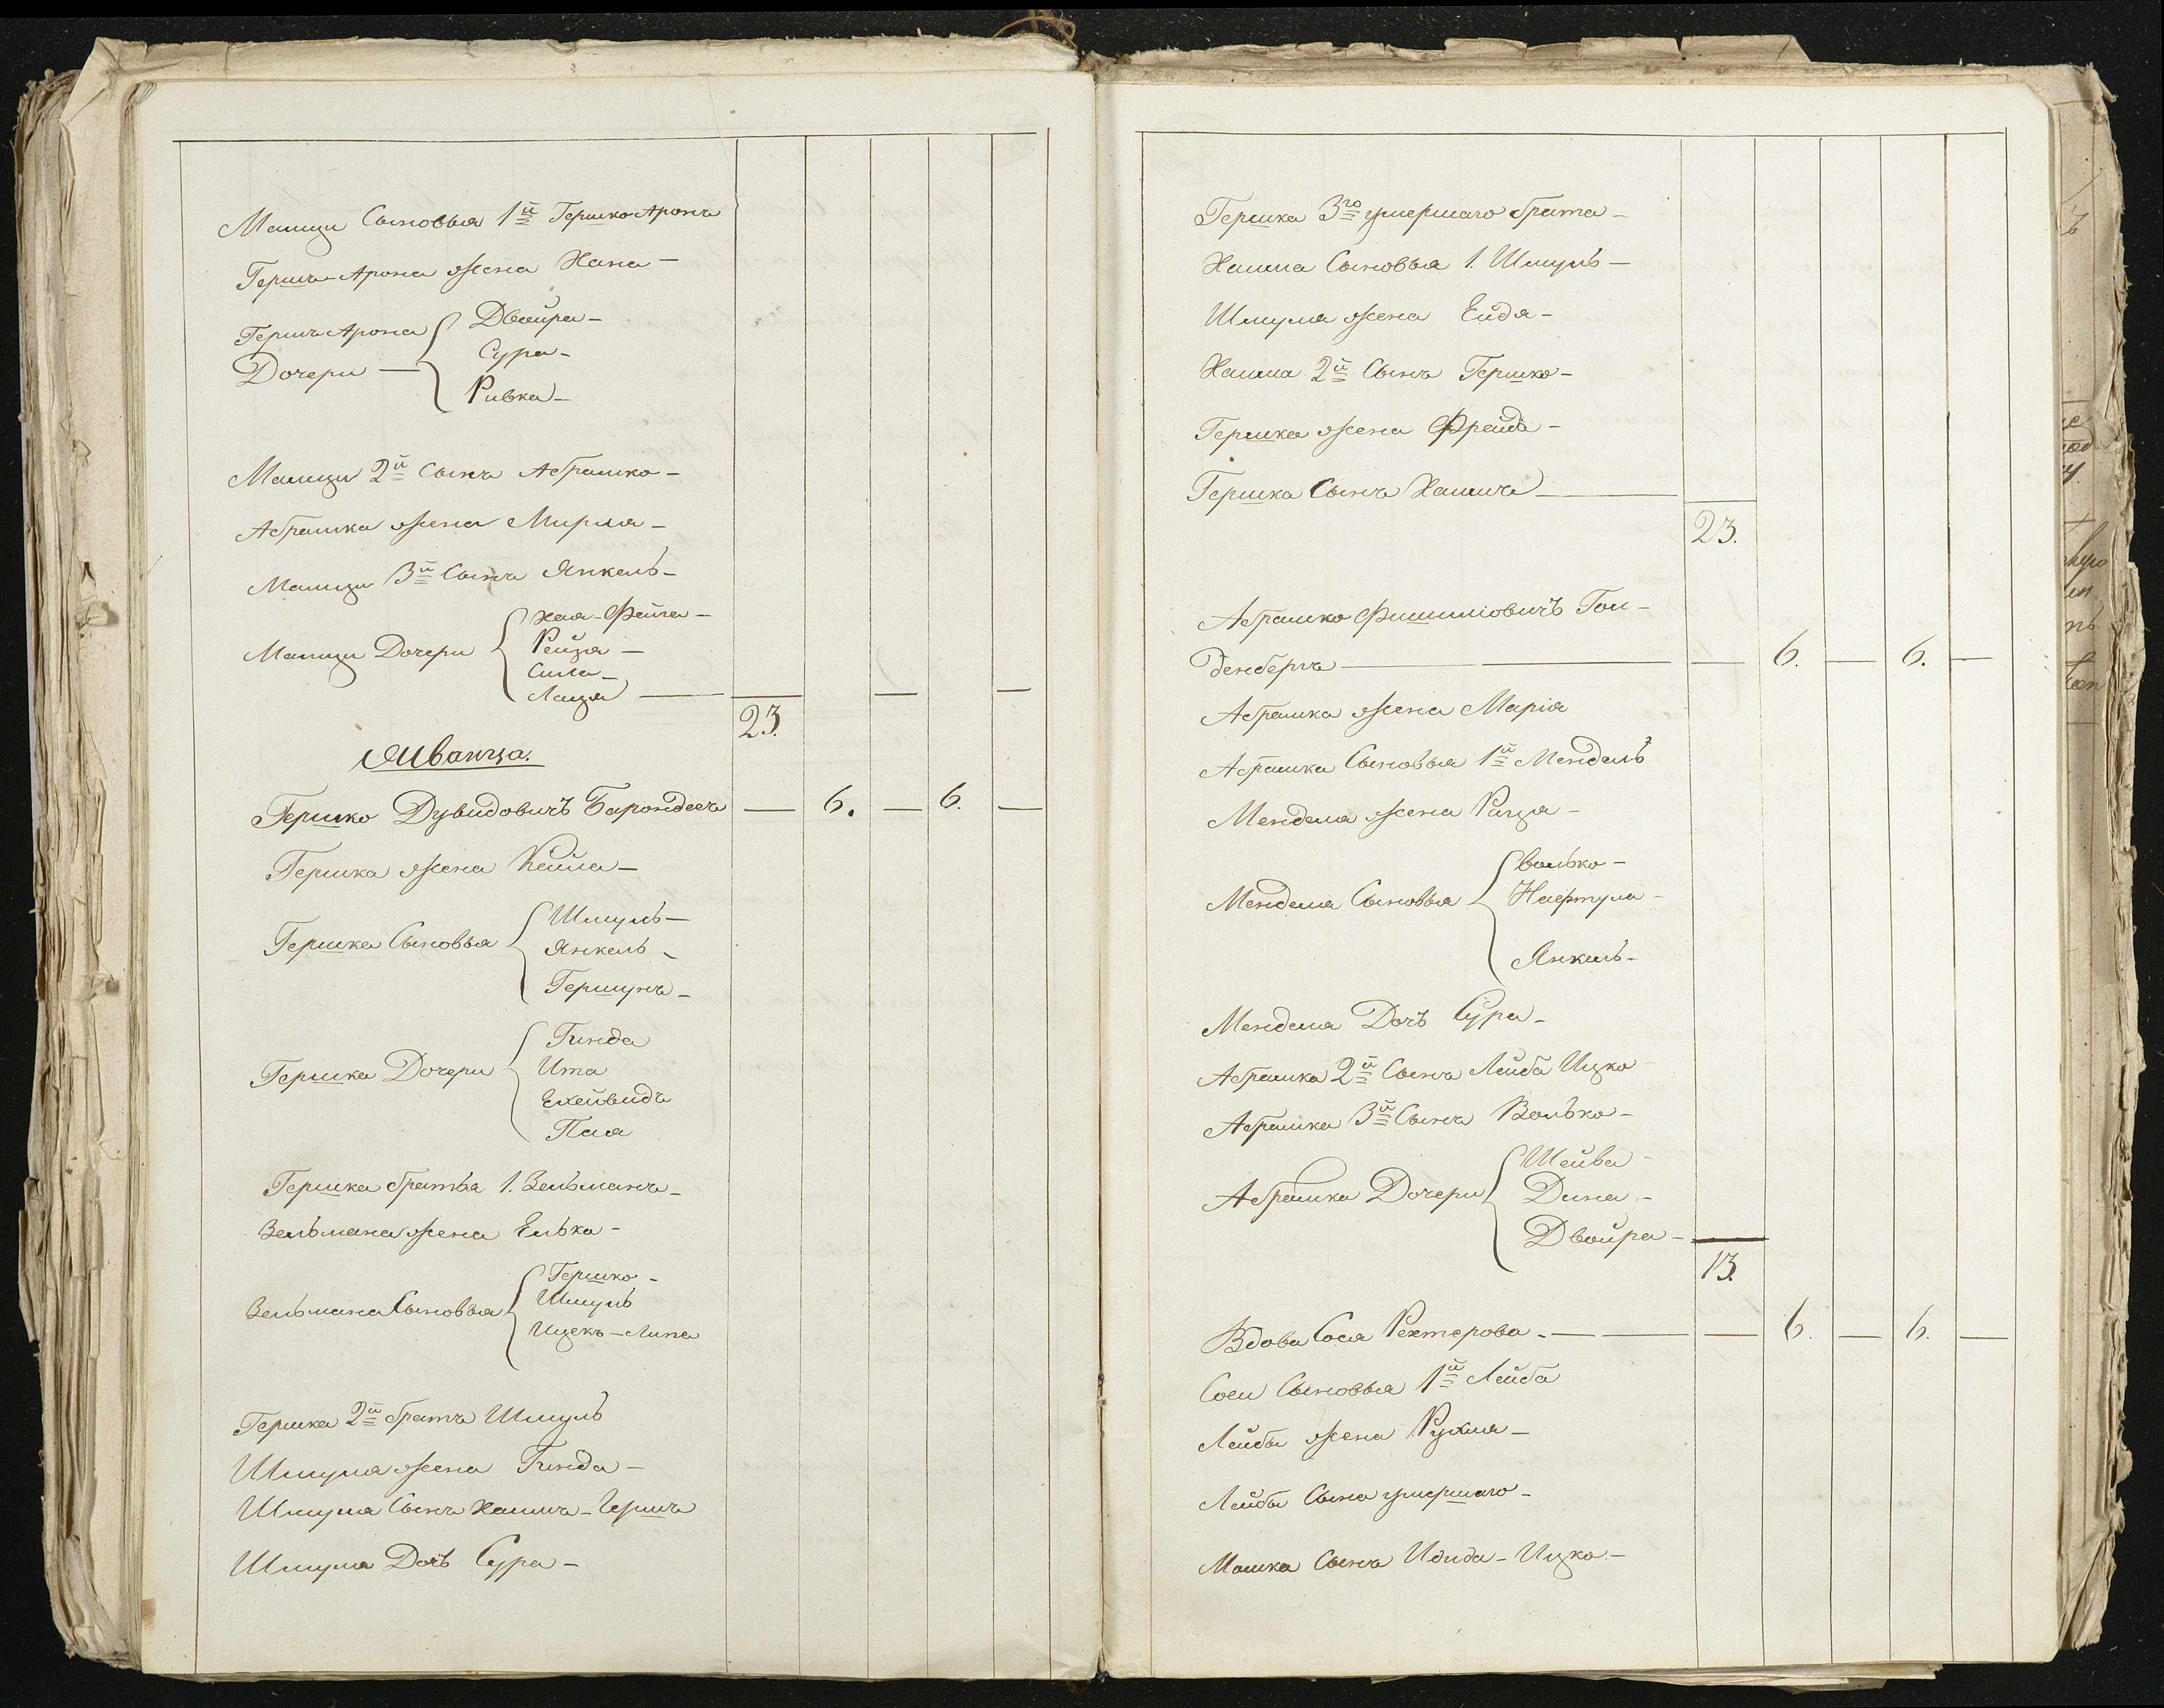 Маици Сыновья 1й Гершко Аронъ
Гершъ-Арона жена Хана —
Гершъ Арона
Дочери —
Двойра —
Сура —
Ривка —
Маици 2й Сынъ Абрамко —
Абрамка жена Мирля —
Маици 3й Сынъ Янкель —
Маици Дочери
Хая-Фейга —
Рейзя —
Сима —
23.
Жванца.
Гершко Дувидовичъ Барондесъ — 6. — 6. —
Гершка жена Кейла —
Гершка Сыновья
Шмуль —
Янкель —
Гершунъ —
Гершка Дочери
Гинда
Ита
Ехейвидъ
Пая
Гершка братья 1. Зельманъ —
Зельмана жена Елька —
Зельмана Сыновья
Гершко —
Шмуль
Ицекъ-Липа
Гершка 2й братъ Шмуль
Шмуля жена Гинда —
Шмуля Сынъ Хаимъ-Гершъ
Шмуля Дочь Сура —
Гершка 3го умершаго брата —
Хаима Сыновья 1. Шмуль —
Шмуля жена Ейдя —
Хаима 2й Сынъ Гершко —
Гершка жена Фрейда —
Гершка Сынъ Хаимъ —
23.
Абрамко Фишиліовичъ Гол-
денбергъ — 6. — 6. —
Абрамка жена Марія
Абрамка Сыновья 1й Мендель
Менделя жена Раця —
Менделя Сыновья
Волько —
Нафтула —
Янкель —
Менделя Дочь Сура —
Абрамка 2й Сынъ Лейба Ицко
Абрамка 3й Сынъ Волько —
Абрамка Дочери
Шейва —
Дина —
Двойра —
13.
Вдова Сося Рехтерова — 6. — 6. —
Соси Сыновья 1й Лейба
Лейбы жена Рухля —
Лейбы Сына умершаго —
Мошка Сынъ Идида-Ицко —